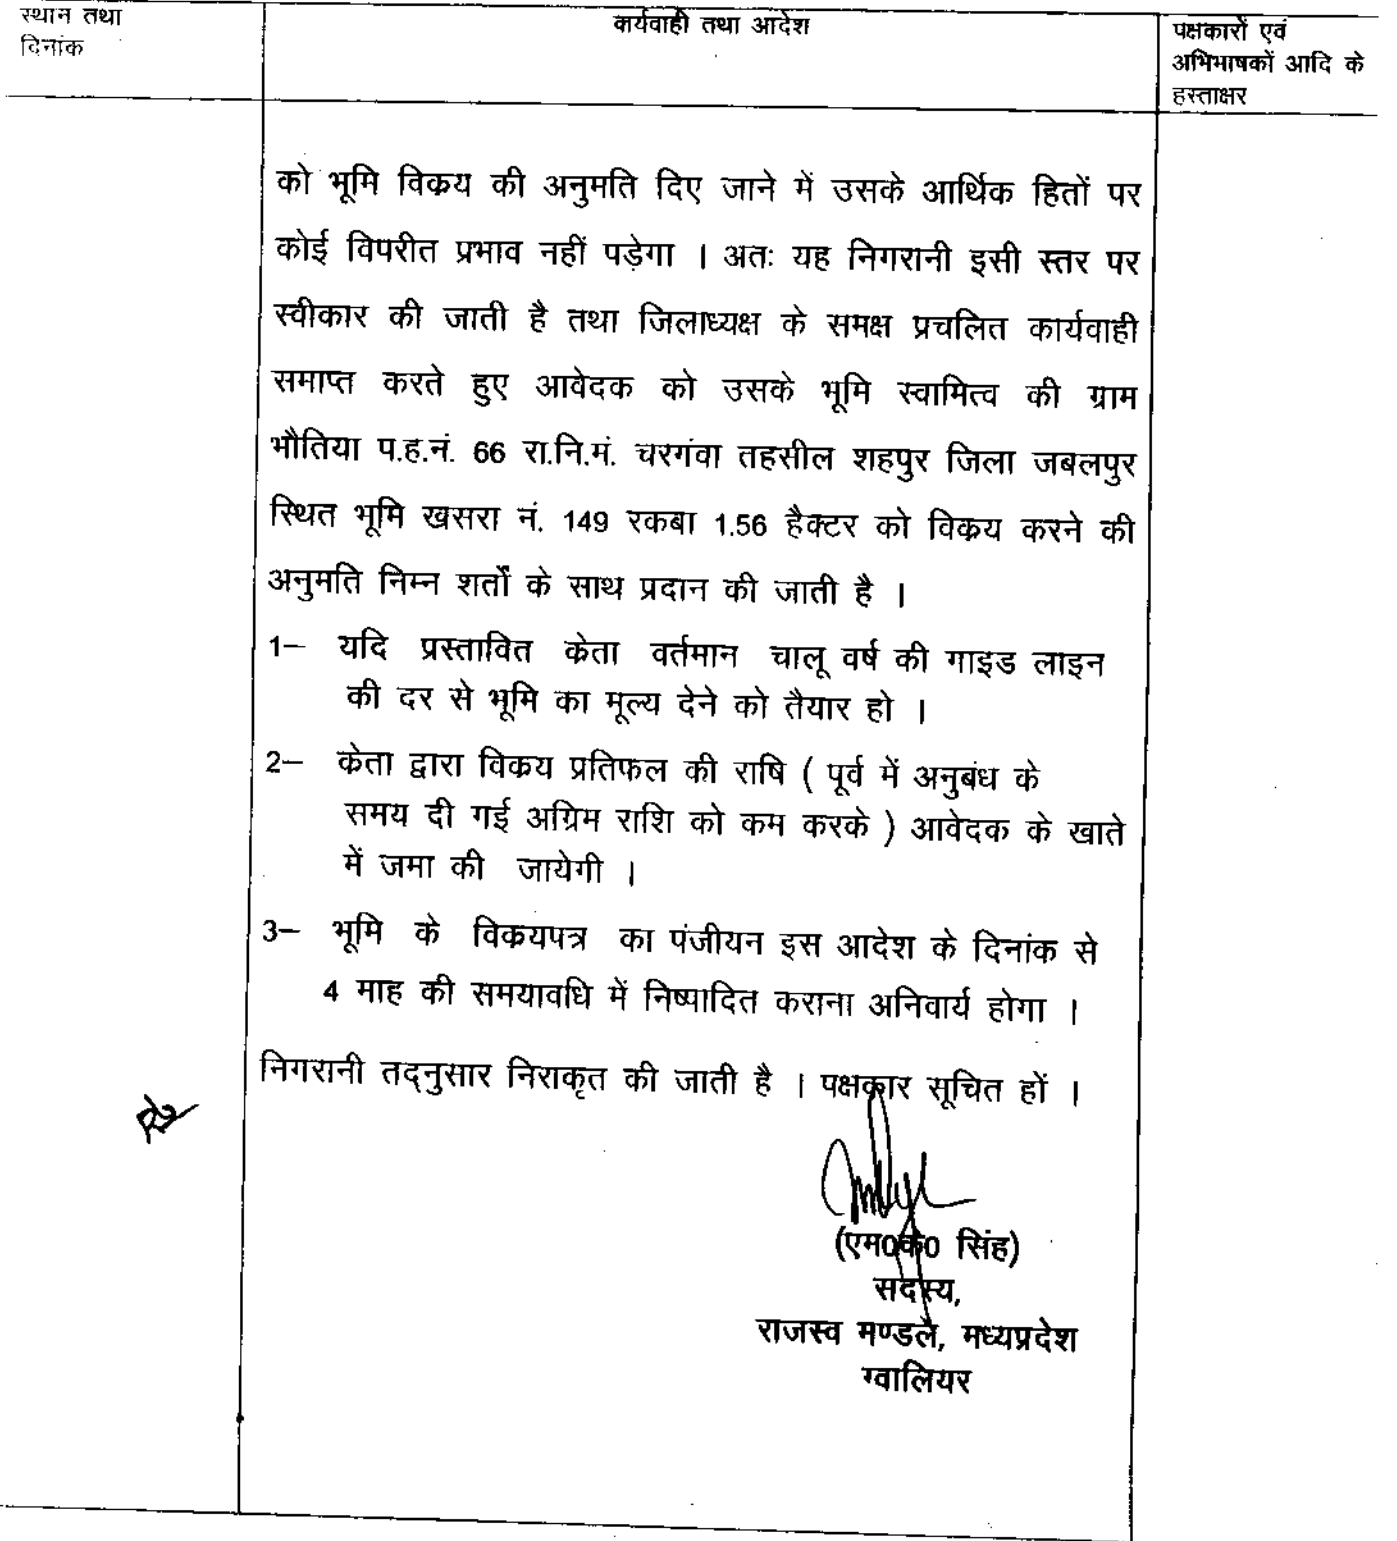 स्थान तथा
दिनांक
कार्यवाही तथा आदेश
पक्षकारों एवं
अभिभाषकों आदि के
हस्ताक्षर
को भूमि विक्रय की अनुमति दिए जाने में उसके आर्थिक हितों पर
कोई विपरीत प्रभाव नहीं पड़ेगा । अतः यह निगरानी इसी स्तर पर
स्वीकार की जाती है तथा जिलाध्यक्ष के समक्ष प्रचलित कार्यवाही
समाप्त करते हुए आवेदक को उसके भूमि स्वामित्व की ग्राम
भौतिया प.ह.नं. 66 रा.नि.मं. चरगंवा तहसील शहपुर जिला जबलपुर
स्थित भूमि खसरा नं. 149 रकबा 1.56 हैक्टर को विक्रय करने की
अनुमति निम्न शर्तों के साथ प्रदान की जाती है ।
1– यदि प्रस्तावित केता वर्तमान चालू वर्ष की गाइड लाइन
की दर से भूमि का मूल्य देने को तैयार हो ।
2– केता द्वारा विक्रय प्रतिफल की राषि ( पूर्व में अनुबंध के
समय दी गई अग्रिम राशि को कम करके ) आवेदक के खाते
में जमा की जायेगी ।
3– भूमि के विक्रयपत्र का पंजीयन इस आदेश के दिनांक से
4 माह की समयावधि में निष्पादित कराना अनिवार्य होगा ।
निगरानी तद्नुसार निराकृत की जाती है । पक्षकार सूचित हों ।
(एम0के0 सिंह)
सदस्य,
राजस्व मण्डल, मध्यप्रदेश
ग्वालियर